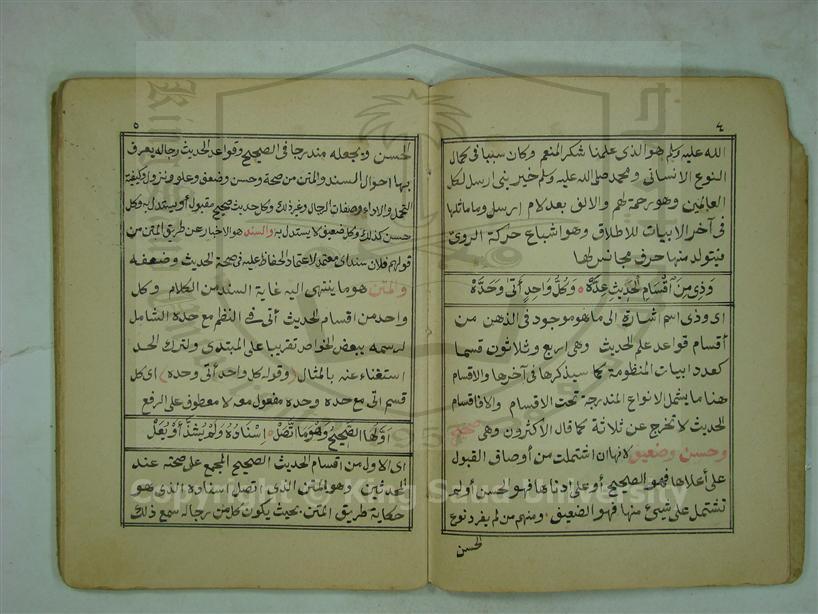 ٤
الله عليه وسلم هو الذى علمنا شكر المنعم وكان سببا فى كمال
النوع الانسانى ومحمد صلى الله عليه وسلم خير نبى ارسل لكل
العالمين وهو رحمة لهم والالف بعد لام ارسل وما ماثلها
فى آخر الابيات للاطلاق وهو اشباع حركة الروى
فيتولد منها حرف مجانس لها
وَذِى مِنَ اقْسَامِ الْحَدِيثِ عِدَّهْ ٥ وَكُلُّ وَاحِدٍ أَتَى وَحَدَّهْ
اى وذى اسم اشارة الى ما هو موجود فى الذهن من
أقسام قواعد علم الحديث وهى اربع وثلاثون قسما
كعدد ابيات المنظومة كما سيذكرها فى آخرها والاقسام
هنا ما يشمل الانواع المندرجة تحت الاقسام والا فاقسام
الحديث لا تخرج عن ثلاثة كما قال الأكثرون وهى صحيح
وحسن وضعيف لانها ان اشتملت من أوصاف القبول
على أعلاها فهو الصحيح أو على ادناها فهو الحسن أو لم
تشتمل على شيئ منها فهو الضعيف ومنهم من لم يفرد نوع
الحسن
٥
الحسن ويجعله مندرجا فى الصحيح وقواعد الحديث رجاله يعرف
بها احوال المسند والمتن من صحة وحسن وضعف وعلو ونزول وكيفية
التحمل والاداء وصفات الرجال وغير ذلك وكل حديث صحيح مقبول أو يستدل به وكل
حسن كذلك وكل ضعيف لا يستدل به والسند هو الاخبار عن طريق المتن من
قولهم فلان سند اى معتمد لاعتماد الحفاظ عليه فى صحة الحديث وضعفه
والمتن هو ما ينتهى اليه غاية السند من الكلام وكل
واحد من اقسام الحديث أتى فى النظم مع حده الشامل
لرسمه ببعض الخواص تقريبا على المبتدى ولترك الحد
استغناء عنه بالمثال (وقوله كل واحد أتى وحده) اى كل
قسم اتى مع حده وحده مفعول معه لا معطوف على الرفع
أَوَّلُهَا الصَّحِيحُ وَهْوَ مَا اتَّصَلْ ٥ إِسْنَادُهُ وَلَمْ يُشَذَّ أَوْ يُعَلْ
اى الاول من اقسام الحديث الصحيح المجمع على صحته عند
المحدثين وهو المتن الذى اتصل اسناده الذى هو
حكاية طريق المتن بحيث يكون كل من رجاله سمع ذلك
Copyright © King Saud University
1957